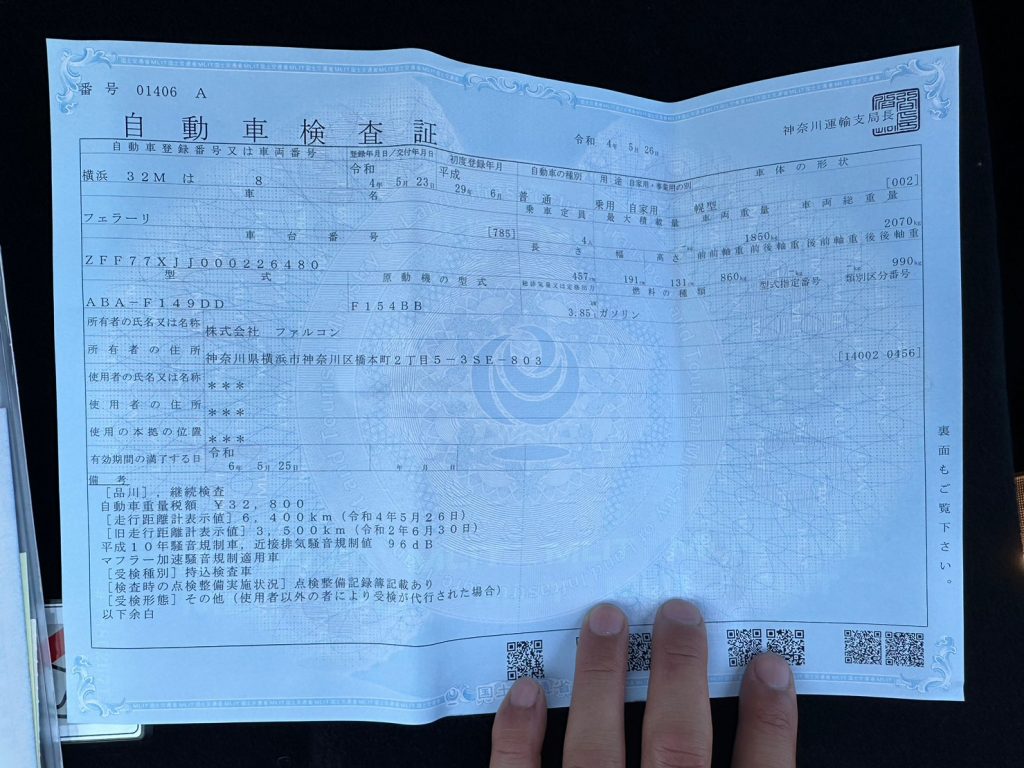 番号 01406 A
自動車検査証
令和 4年 5月 26日
神奈川運輸支局長
自動車登録番号又は車両番号 登録年月日/交付年月日 初度登録年月 自動車の種別 用途 自家用・事業用の別 車体の形状
横浜 32M は 8 令和 4年 5月 23日 平成 29年 6月 普通 乗用 自家用 幌型 [002]
車名 乗車定員 最大積載量 車両重量 車両総重量
フェラーリ [785] 4人 -kg 1850kg 2070kg
車台番号 長さ 幅 高さ 前前軸重 前後軸重 後前軸重 後後軸重
ZFF77XJJ000226480 457cm 191cm 131cm 860kg -kg -kg 990kg
型式 原動機の型式 総排気量又は定格出力 燃料の種類 型式指定番号 類別区分番号
ABA-F149DD F154BB 3.85 kw ガソリン
所有者の氏名又は名称 株式会社 ファルコン
所有者の住所 神奈川県横浜市神奈川区橋本町2丁目5-3SE-803 [14002-0456]
使用者の氏名又は名称 ***
使用者の住所 ***
使用の本拠の位置 ***
有効期間の満了する日 令和 6年 5月 25日 年 月 日
備考
[品川],継続検査
自動車重量税額 ¥32,800
[走行距離計表示値]6,400km(令和4年5月26日)
[旧走行距離計表示値]3,500km(令和2年6月30日)
平成10年騒音規制車,近接排気騒音規制値 96dB
マフラー加速騒音規制適用車
[受検種別]持込検査車
[検査時の点検整備実施状況]点検整備記録簿記載あり
[受検形態]その他(使用者以外の者により受検が代行された場合)
以下余白
裏面もご覧下さい。